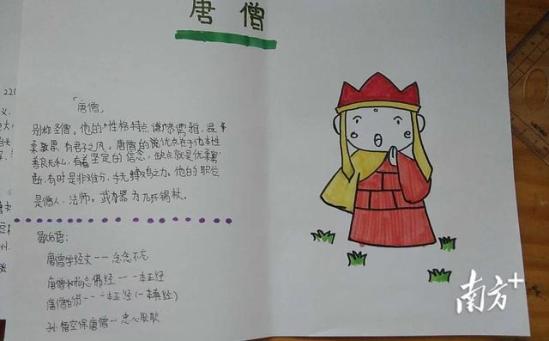 唐僧
「唐僧」
别称圣僧。他的性格特点谦恭儒雅,温
柔敦厚,有君子之风。唐僧的优点在于他本性
善良无私,有着坚定的信念,缺点就是优柔寡
断,有时是非难分,手无缚鸡之力。他的职位
是僧人、法师。武器为九环锡杖。
歇后语:
唐僧学经文——念念不忘
唐僧和尚念佛经——一本正经
唐僧的书——一本正经(一本真经)
孙悟空保唐僧——忠心耿耿
南方+